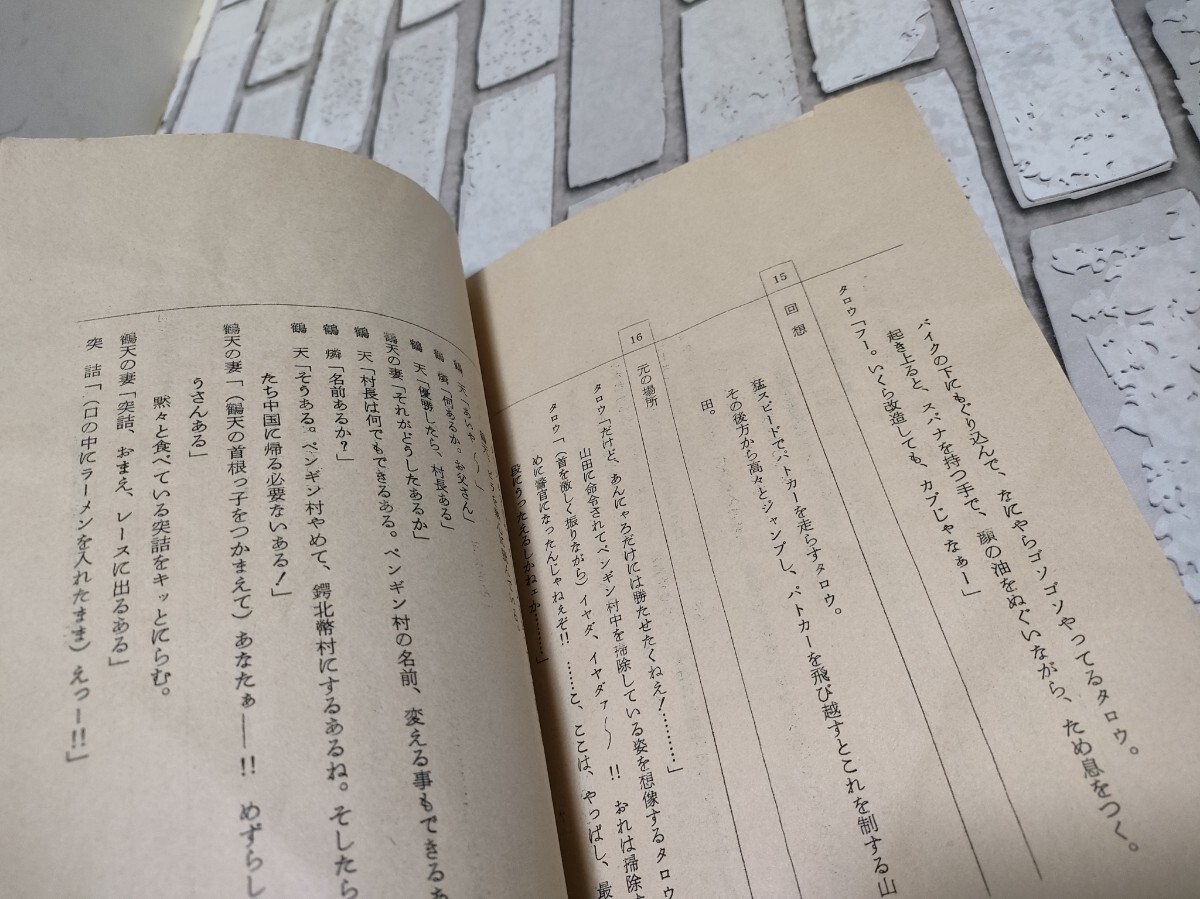 バイクの下にもぐり込んで、なにやらゴソゴソやってるタロウ。
起き上ると、スパナを持つ手で、顔の油をぬぐいながら、ため息をつく。
タロウ「フー。いくら改造しても、カブじゃなぁー」
15
回想
猛スピードでパトカーを走らすタロウ。
その後方から高々とジャンプし、パトカーを飛び越すとこれを制する山
田。
16
元の場所
タロウ「だけど、あんにゃろだけには勝たせたくねえ!…………」
山田に命令されてペンギン村中を掃除している姿を想像するタロウ
タロウ「(首を激しく振りながら)イヤダ、イヤダァ〜〜!! おれは掃除
めに警官になったんじゃねえぞ!! ……こ、ここは、やっぱし、最
段にうったえるしかねェか…………」
鶴天「あいや〜〜」
鶴燐「何あるか。お父さん」
鶴天「優勝したら、村長ある」
鶴天の妻「それがどうしたあるか」
鶴天「村長は何でもできるある。ペンギン村の名前、変える事もできるあ
鶴燐「名前あるか?」
鶴天「そうある。ペンギン村やめて、鍔北幣村にするあるね。そしたら
たち中国に帰る必要ないある!」
鶴天の妻「(鶴天の首根っ子をつかまえて)あなたぁ――!! めずらし
うさんある」
黙々と食べている突詰をキッとにらむ。
鶴天の妻「突詰、おまえ、レースに出るある」
突詰「(口の中にラーメンを入れたまま)えっー!!」